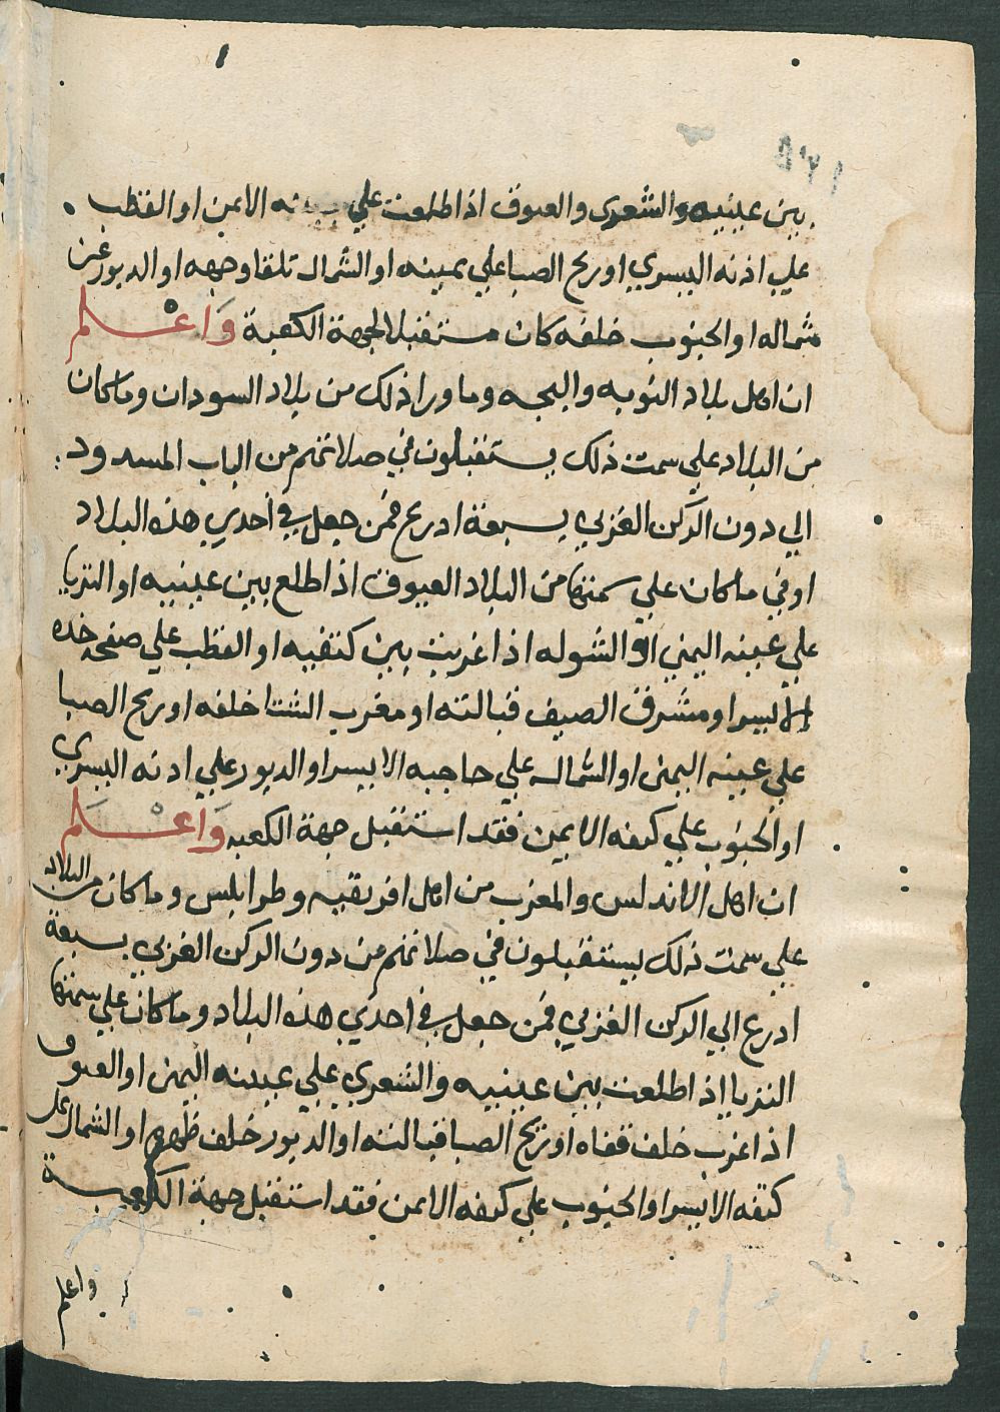 بين عينيه والشعري والعيوق اذا طلعت علي الايمن او القطب
علي اذنه اليسري او ريح الصبا علي يمينه او الشمال تلقا وجهه او الدبور عن
شماله او الجنوب خلفه كان مستقبلا لجهة الكعبة وَاعْلم
ان اهل بلاد النوبه والبجه وما ورا ذلك من بلاد السودان وما كان
من البلاد علي سمت ذلك يستقبلون في صلاتهم من الباب المسدود
الي دون الركن الغربي بسبعة اذرع فمن جعل في احدي هذه البلاد
او في ما كان علي سمتها من البلاد العيوق اذا طلع بين عينيه او الثريا
علي عينه اليمني او الشوله اذا غربت بين كتفيه او القطب علي صفحه خده
الايسر او مشرق الصيف قبالته او مغرب الشتا خلفه او ريح الصبا
علي عينه اليمني او الشمال علي حاجبه الايسر او الدبور علي اذنه اليسري
او الجنوب علي كتفه الايمن فقد استقبل جهة الكعبه وَاعْلَم
ان اهل الاندلس والمغرب من اهل افريقيه وطرابلس وما كان من البلاد
علي سمت ذلك يستقبلون في صلاتهم من دون الركن الغربي بسبعة
اذرع الي الركن الغربي فمن جعل في احدي هذه البلاد وما كان علي سمتها
الثريا اذا طلعت بين عينيه والشعري علي عينه اليمني او العيوق
اذا غرب خلف قفاه او ريح الصبا قبالته او الدبور خلف ظهره او الشمال علي
كتفه الايسر او الجنوب علي كتفه الايمن فقد استقبل جهة الكعبة
واعلم